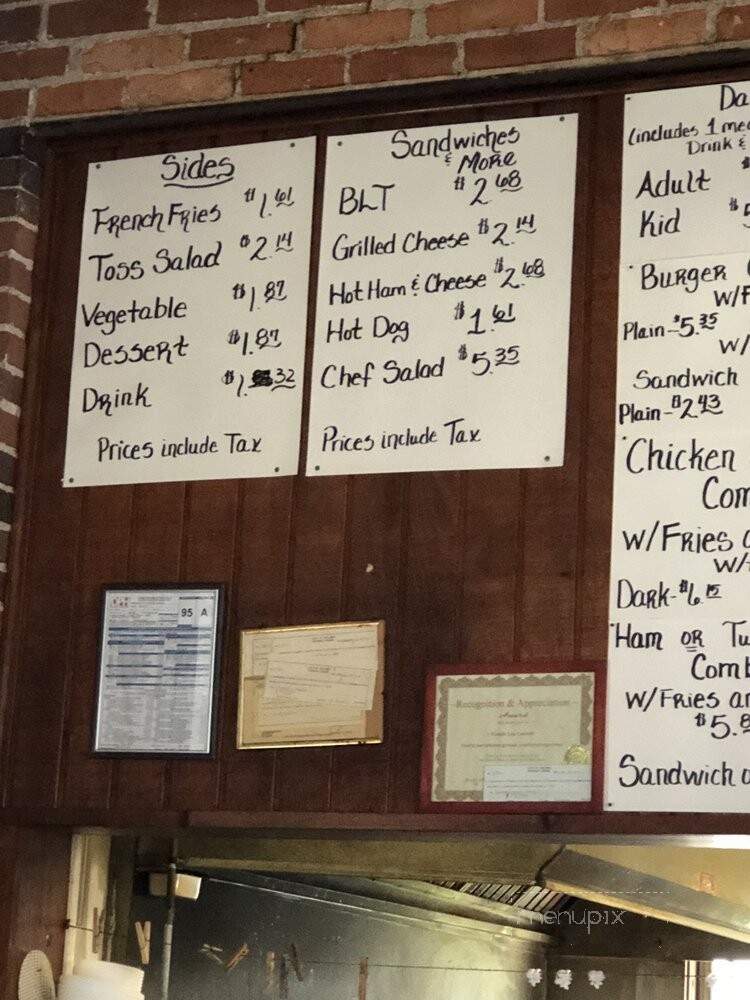 Sides
French Fries $1.61
Toss Salad $2.14
Vegetable $1.87
Dessert $1.87
Drink $1.32
Prices include Tax
Sandwiches
& More
BLT $2.68
Grilled Cheese $2.14
Hot Ham & Cheese $2.68
Hot Dog $1.61
Chef Salad $5.35
Prices include Tax
Da
(includes 1 mea
Drink &
Adult $
Kid $5
Burger
w/F
Plain-$5.35
w/
Sandwich
Plain-$2.43
Chicken
Com
w/Fries
w/
Dark-$6.15
Ham or Tu
Comb
w/Fries an
$5.8
Sandwich
95 A
Recognition & Appreciation
Award
menupix